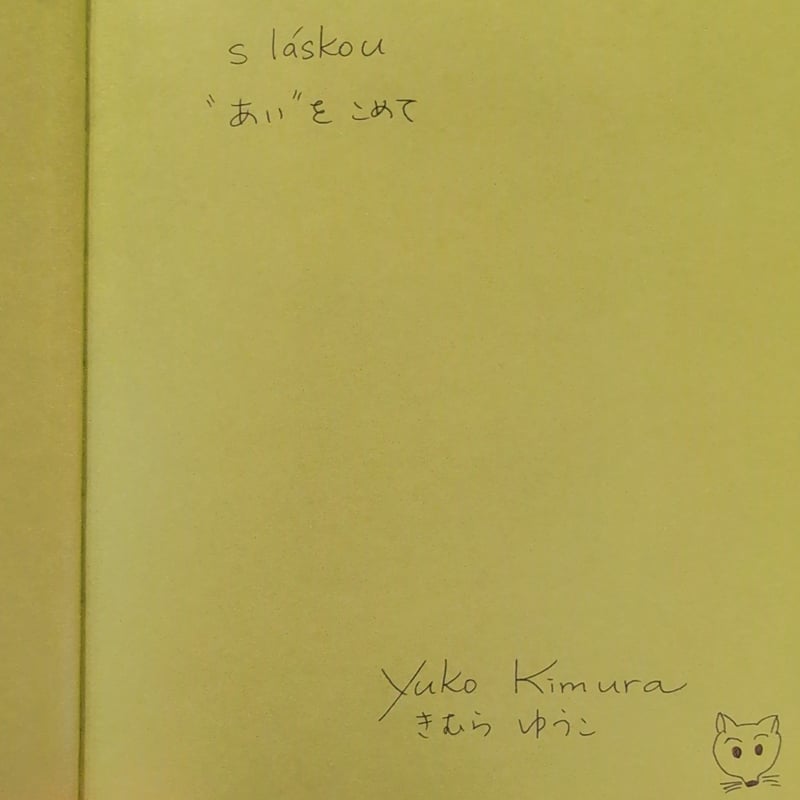 s láskou
"あい"を こめて
Yuko Kimura
きむら ゆうこ